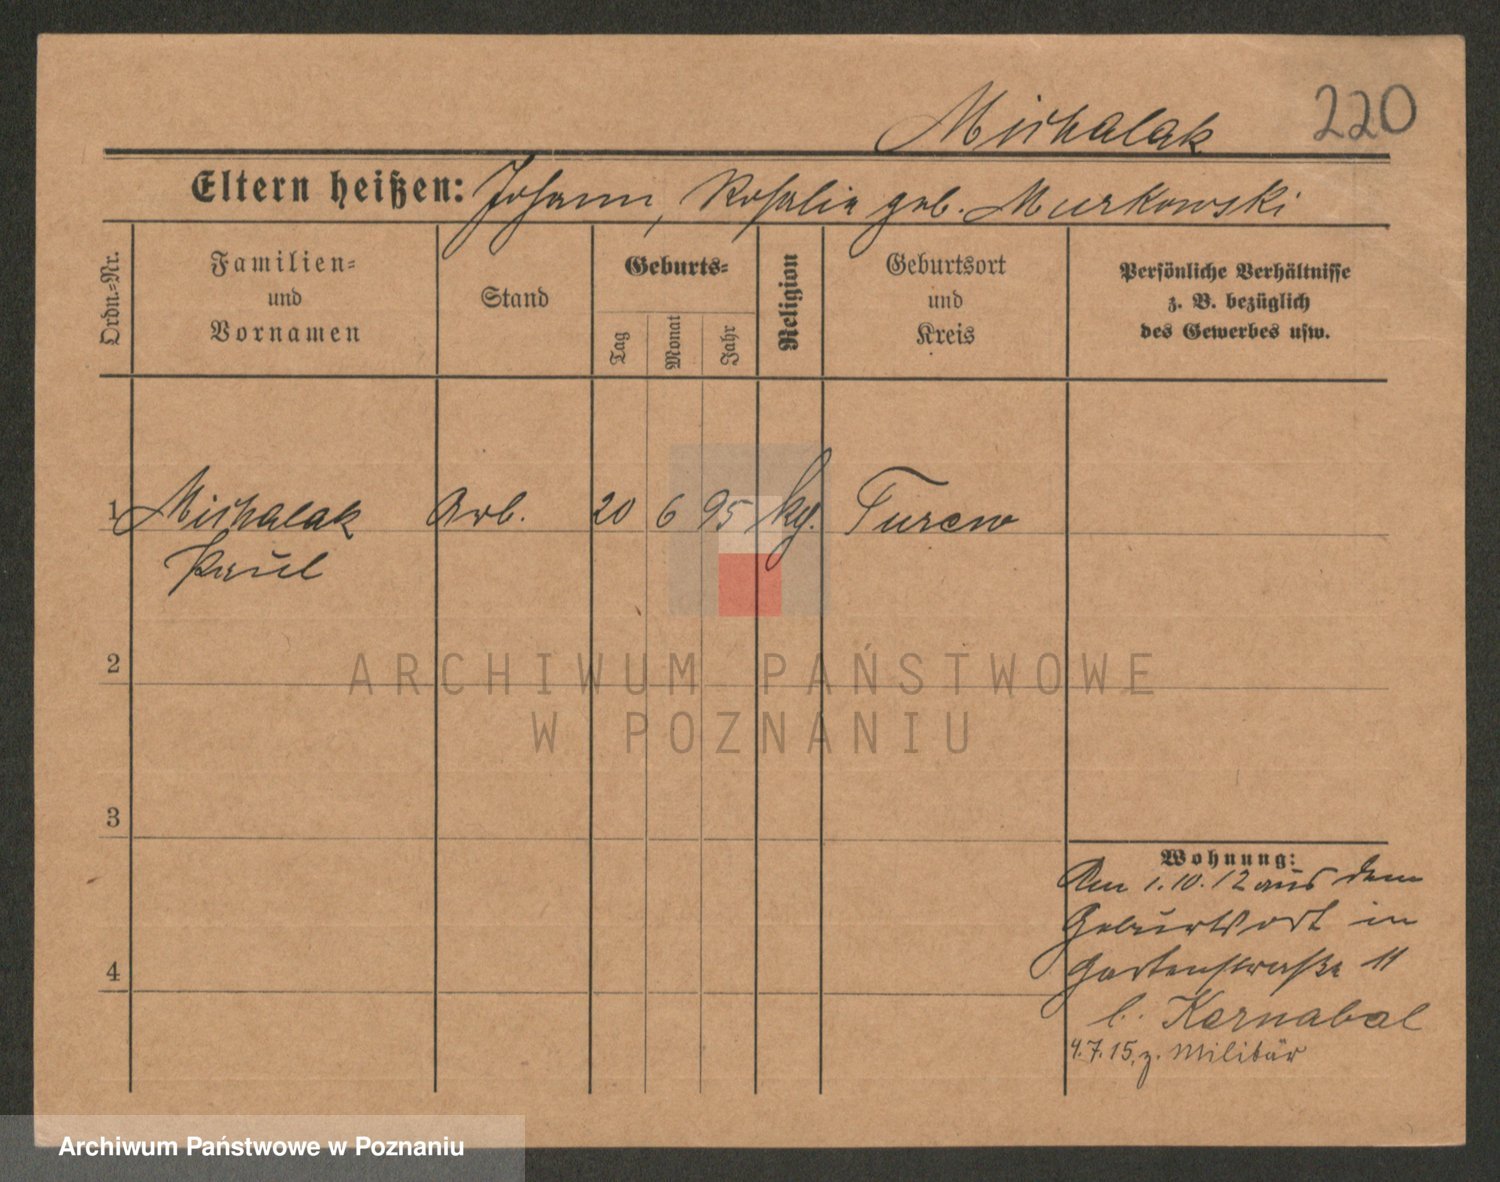 Michalak 220
Eltern heißen: Johann, Rosalie geb. Murkowski
Ordn.-Nr.
Familien-
und
Vornamen
Stand
Geburts-
Tag
Monat
Jahr
Religion
Geburtsort
und
Kreis
Persönliche Verhältnisse
z. B. bezüglich
des Gewerbes usw.
1 Michalak Arb. 20 6 95 kg. Turew
Paul
2
ARCHIWUM PAŃSTWOWE
W POZNANIU
3
Wohnung:
Am 1.10.12 aus dem
Geburtsort in
Gartenstraße 11
b. Karnabal
4
4.7.15, z. Militär
Archiwum Państwowe w Poznaniu